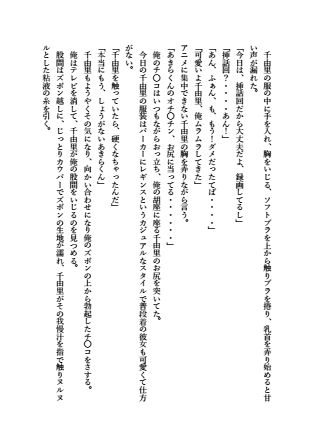 千由里の服の中に手を入れ、胸をいじる、ソフトブラを上から触りブラを捲り、乳首を弄り始めると甘
い声が漏れた。
「今日は、挿話回だから大丈夫だよ、録画してるし」
「挿話回？・・・・あん！」
「あん、ふぁん、も、もう！ダメだったてば・・・・」
「可愛いよ千由里、俺ムラムラしてきた」
アニメに集中できない千由里の胸を弄りながら言う。
「あきらくんのオチ〇チン、お尻に当ってる・・・・・」
俺のチ〇コはいつもながらおっ立ち、俺の胡座に座る千由里のお尻を突いてた。
今日の千由里の服装はパーカーにレギンスというカジュアルなスタイルで普段着の彼女も可愛くて仕方
がない。
「千由里を触っていたら、硬くなちゃったんだ」
「本当にもう、しょうがないあきらくん」
千由里もようやくその気になり、向かい合わせになり俺のズボンの上から勃起したチ〇コをさする。
俺はテレビを消して、千由里が俺の股間をいじるのを見つめる。
股間はズボン越しに、じっとりカウパーでズボンの生地が濡れ、千由里がその我慢汁を指で触りヌルヌ
ルとした粘液の糸を引く。